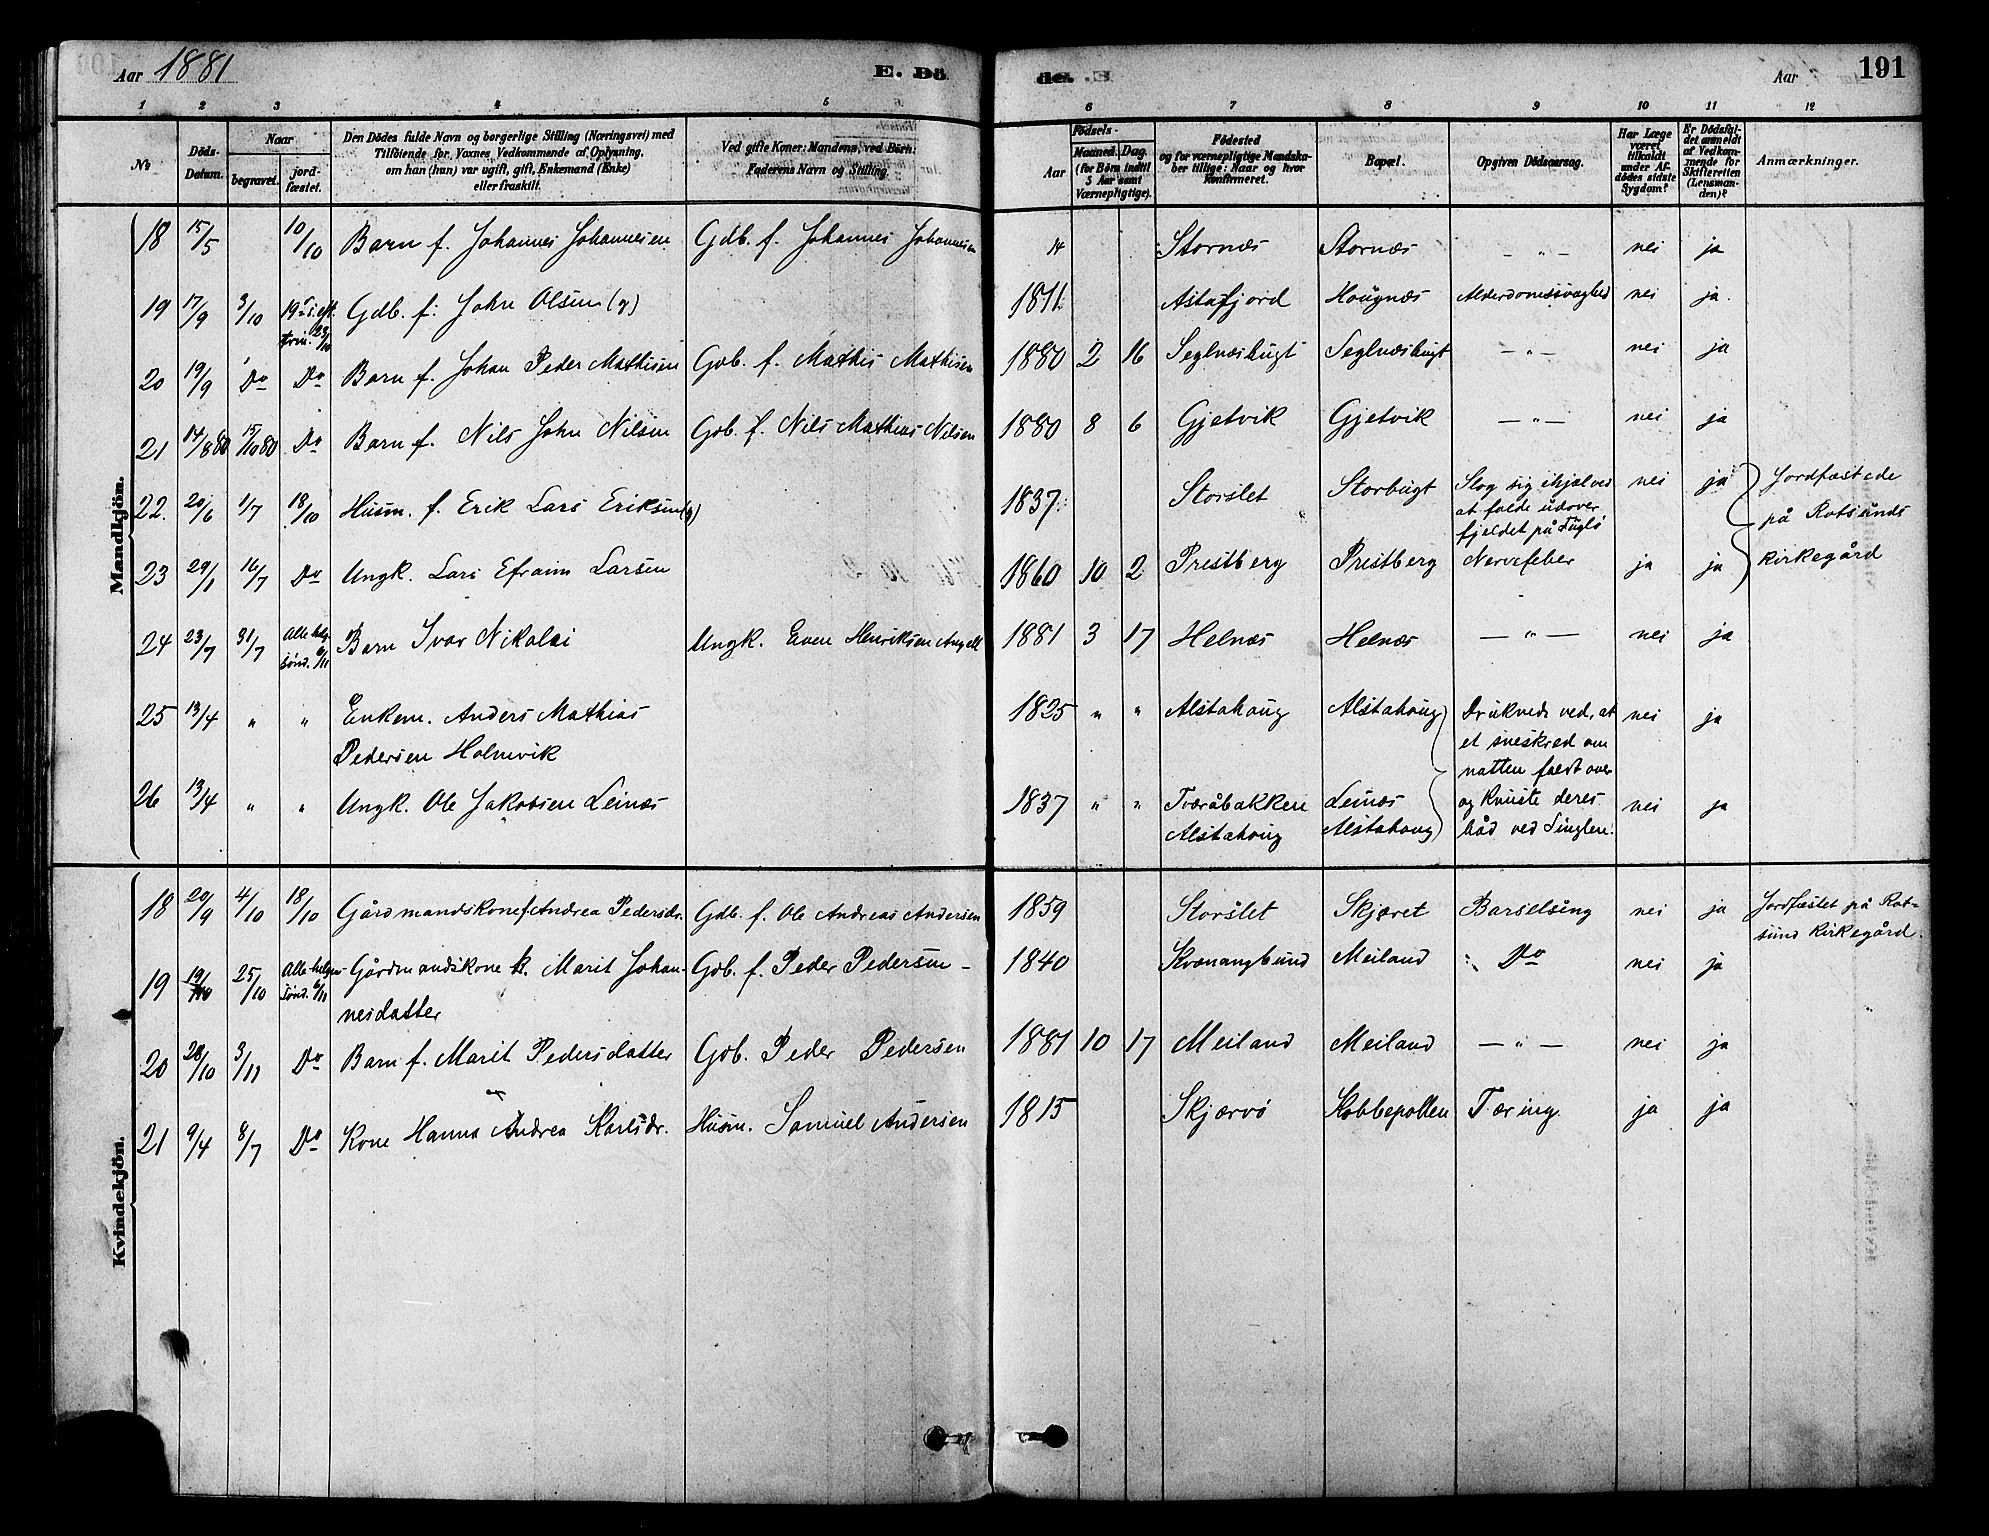 Aar 1881
E. Dö
de.
Aar
191
1 2 3 4 5 6 7 8 9 10 11 12
No
Döds-Datum.
Naar
begravet.
jordfæstet.
Den Dödes fulde Navn og borgerlige Stilling (Næringsvei) med
Tilföiende for Voxnes Vedkommende af Oplysning,
om han (hun) var ugift, gift, Enkemand (Enke)
eller fraskilt.
Ved gifte Koner: Mandens, ved Börn:
Faderens Navn og Stilling.
Födsels-
Aar
Maaned. Dag.
(for Börn indtil
5 Aar samt
Værnepligtige).
Födested
og for værnepligtige Mandska-
ber tillige: Naar og hvor
Konfirmeret.
Bopæl.
Opgiven Dödsaarsag.
Har Læge
været
tilkaldt
under Af-
dödes sidste
Sygdom?
Er Dödsfal-
det anmeldt
af Vedkom-
mende for
Skifteretten
(Lensman-
den)?
Anmærkninger.
Mandkjön.
18 15/5 10/10 Barn f. Johannes Johannesen Gdb. f. Johannes Johannesen 14 Stornæs Stornæs - " - nei ja
19 17/9 3/10 19de s. eft. trin. 23/10 Gdb. f. John Olsen (g) 1811 Astafjord Hougnæs Alderdomssvaghed nei ja
20 19/9 Do Do Barn f. Johan Peder Mathisen Gdb. f. Mathis Mathisen 1880 2 16 Seglnæsbugt Seglnæsbugt - " - nei ja
21 14/8 80 15/10 80 Do Barn f. Nils John Nilsen Gdb. f. Nils Mathias Nilsen 1880 8 6 Gjetvik Gjetvik - " - nei ja
22. 20/6 1/7 18/10 Husm. f. Erik Lars Eriksen (g) 1837 Storslet Storbugt Slog sig ihjel ved
at falde udover
fjeldet på Fuglø nei ja Jordfæstede
på Rotsunds
kirkegård
23 29/1 16/7 Do Ungk. Lars Efraim Larsen 1860 10 2 Prestberg Prestberg Nervefeber ja ja
24 23/7 31/7 Alle helg. sønd. 6/11 Barn Ivar Nikolai Ungk. Even Henriksen Angell 1881 3 17 Helnæs Helnæs - " - nei ja
25 13/4 " " Enkem. Anders Mathias
Pedersen Holmvik 1825 " " Alstahoug Alstahoug Druknede ved, at
et sneskred om
natten faldt over
og knuste deres
båd ved nei ja
26 13/4 " " Ungk. Ole Jakobsen Leinæs 1837 " " Tveråbakken
Alstahoug Leinæs
Alstahoug nei ja
Kvindekjön.
18 20/9 4/10 18/10 Gårdmandskone f. Andrea Pedersdr. Gdb. f. Ole Andreas Andersen 1859 Storslet Skjæret Barselseng nei ja Jordfæstet på Rot-
sund kirkegård.
19 19/10 25/10 Alle-helgen sønd. 6/11 Gårdmandskone k. Marit Johan-
nesdatter Gdb. f. Peder Pedersen - 1840 Kvænangbund Meiland Do nei ja
20 28/10 3/11 Do Barn f. Marit Pedersdatter Gdb. Peder Pedersen 1881 10 17 Meiland Meiland - " - nei ja
21 9/4 8/7 Do Kone Hanna Andrea Karlsdr. Husm. Samuel Andersen 1815 Skjærvö Kobbepollen Tæring ja ja